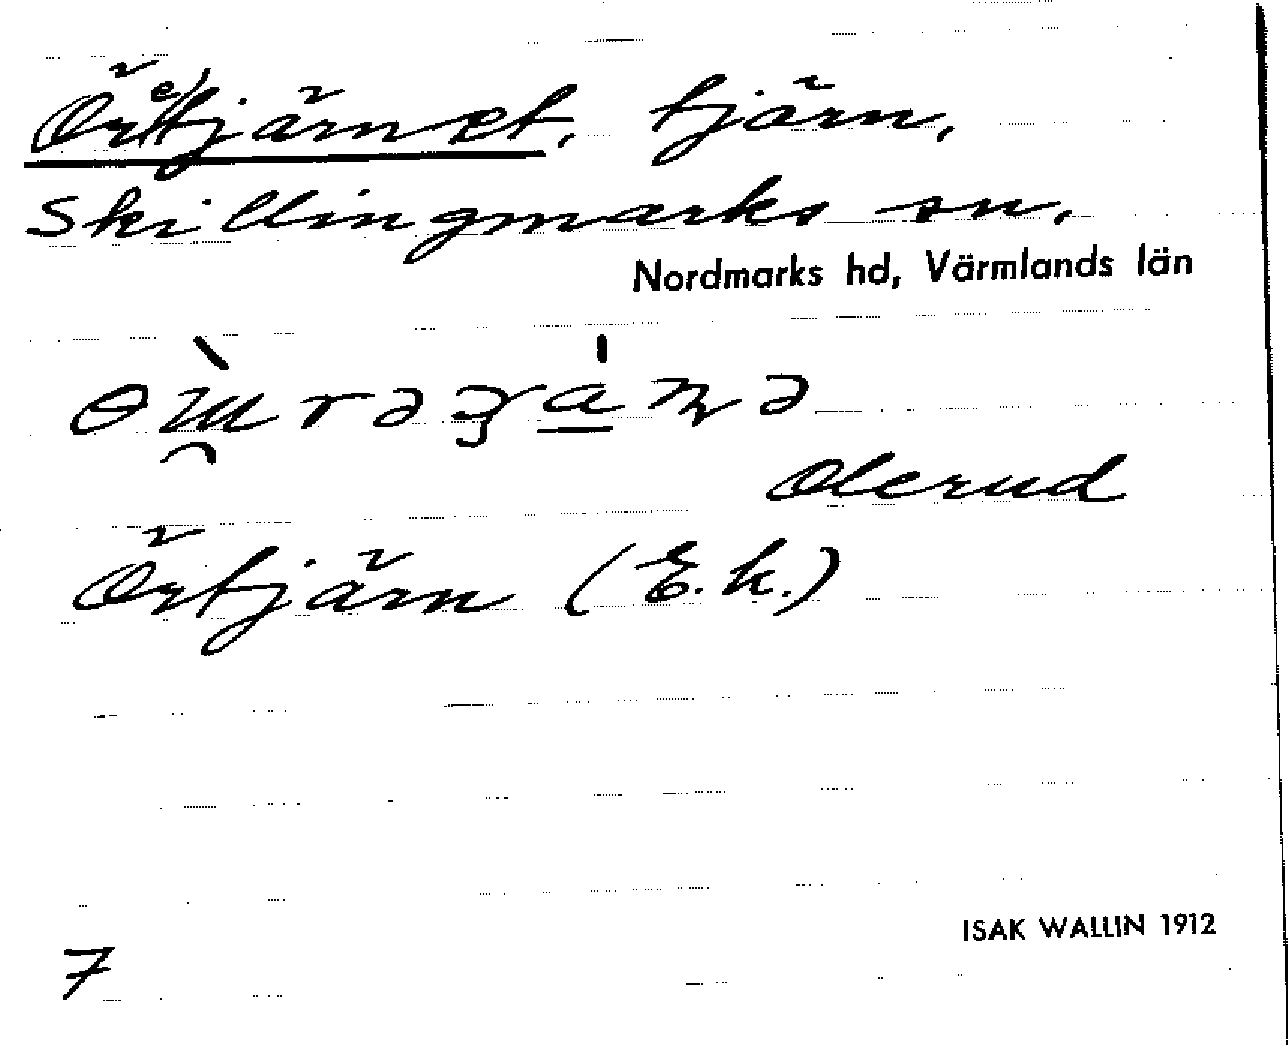 Ör(e)tjärnet, tjärn,
Skillingmarks sn,
Nordmarks hd, Värmlands län
Olerud
Örtjärn (E.k.)
ISAK WALLIN 1912
7